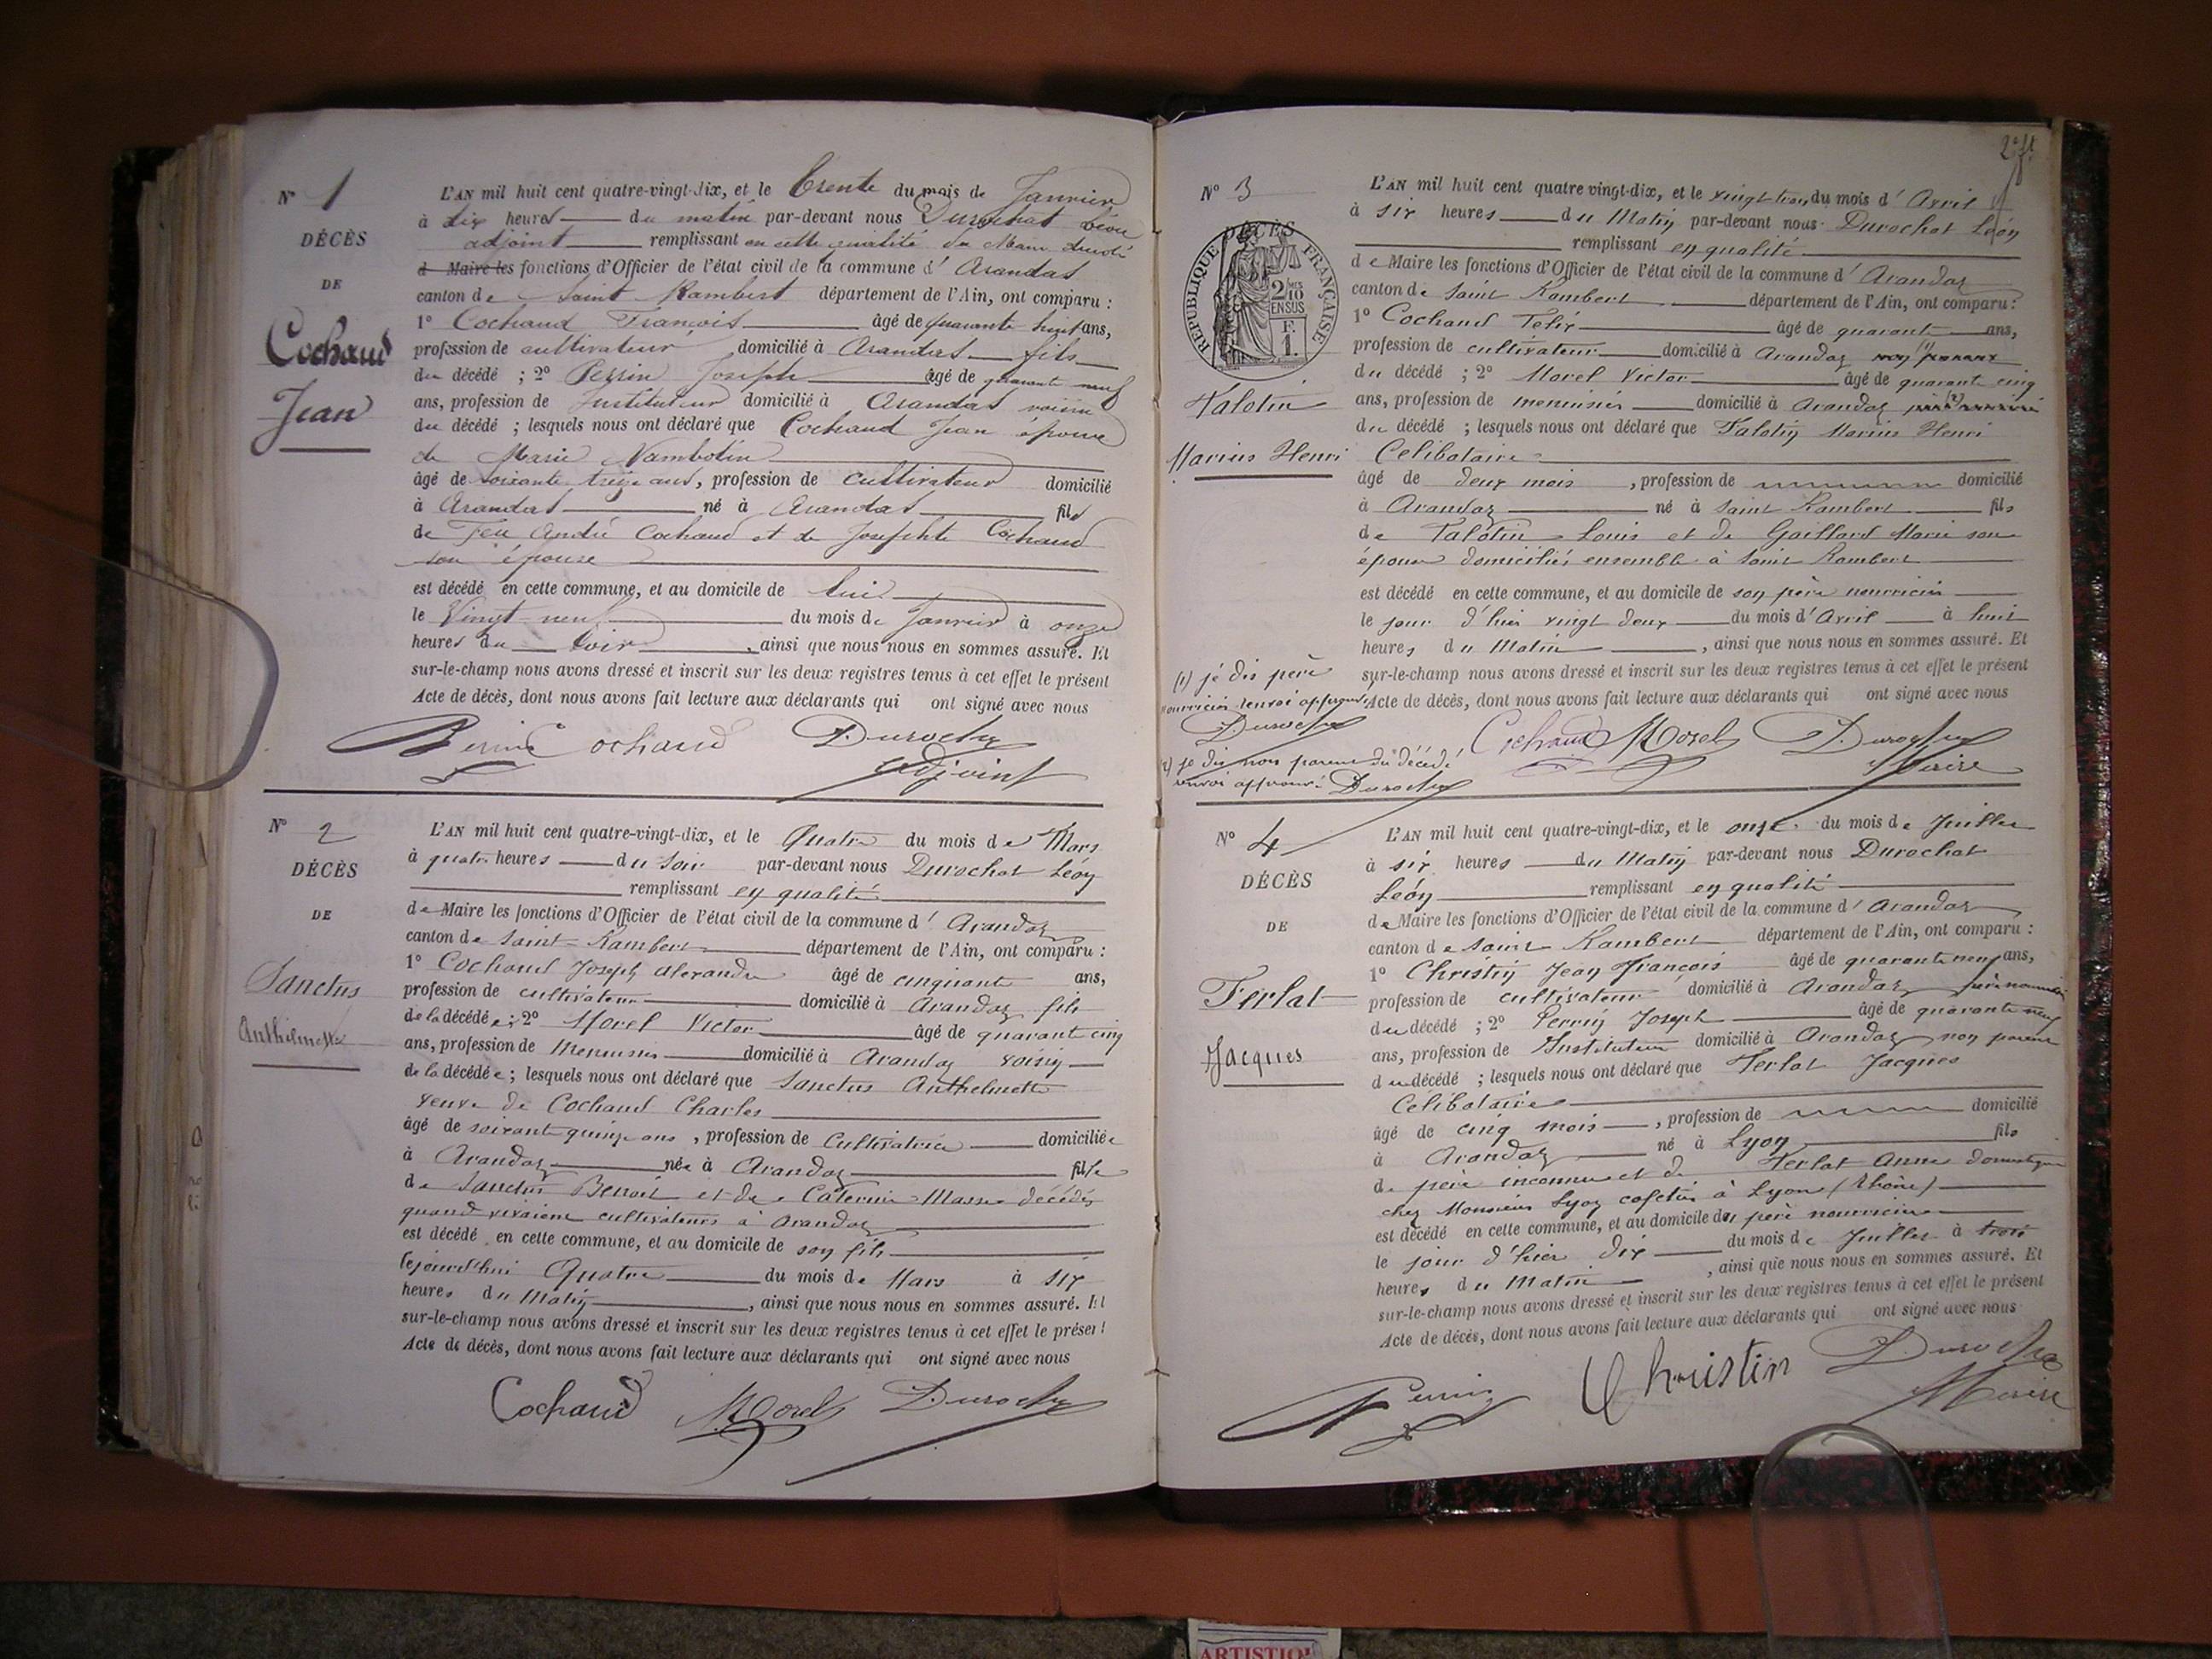 N° 1
DÉCÈS
DE
Cochaud
Jean
L'AN mil huit cent quatre-vingt-dix, et le Trente du mois de Janvier
à dix heures du matin par-devant nous Durochat Léon
adjoint remplissant en cette qualité du Maire
d Maire les fonctions d'Officier de l'état civil de la commune d' Arandas
canton de Saint Rambert département de l'Ain, ont comparu :
1° Cochaud François âgé de quarante huit ans,
profession de cultivateur domicilié à Arandas fils
du décédé ; 2° Perrin Joseph âgé de quarante neuf
ans, profession de Instituteur domicilié à Arandas voisin
du décédé ; lesquels nous ont déclaré que Cochaud Jean époux
de Marie Nambotin
âgé de soixante treize ans, profession de cultivateur domicilié
à Arandas né à Arandas fils
de Feu André Cochaud et de Josephte Cochaud
son épouse
est décédé en cette commune, et au domicile de lui
le Vingt-neuf du mois de Janvier à onze
heures du soir, ainsi que nous nous en sommes assuré. Et
sur-le-champ nous avons dressé et inscrit sur les deux registres tenus à cet effet le présent
Acte de décès, dont nous avons fait lecture aux déclarants qui ont signé avec nous
Perrin Cochaud Durochat
adjoint
N° 2
DÉCÈS
DE
Sanctus
Anthelmette
L'AN mil huit cent quatre-vingt-dix, et le Quatre du mois de Mars
à quatre heures du soir par-devant nous Durochat Léon
remplissant en qualité
de Maire les fonctions d'Officier de l'état civil de la commune d' Arandaz
canton de Saint-Rambert département de l'Ain, ont comparu :
1° Cochaud Joseph alexandre âgé de cinquante ans,
profession de cultivateur domicilié à Arandaz fils
de la décédée ; 2° Morel Victor âgé de quarante cinq
ans, profession de Menuisier domicilié à Arandaz voisin
de la décédée ; lesquels nous ont déclaré que Sanctus Anthelmette
veuve de Cochaud Charles
âgé de soixante quinze ans, profession de Cultivatrice domiciliée
à Arandaz née à Arandaz fille
de Sanctus Benoit et de Caterine Masse décédés
quand vivaient cultivateurs à Arandaz
est décédé en cette commune, et au domicile de son fils
lejourd'hui Quatre du mois de Mars à six
heures du Matin, ainsi que nous nous en sommes assuré. Et
sur-le-champ nous avons dressé et inscrit sur les deux registres tenus à cet effet le présent
Acte de décès, dont nous avons fait lecture aux déclarants qui ont signé avec nous
Cochaud Morel Durochat
N° 3
RÉPUBLIQUE FRANÇAISE
DÉCÈS
2/10 EN SUS
F. 1.
Talotin
Marius Henri
L'AN mil huit cent quatre vingt-dix, et le vingt trois du mois d' Avril
à six heures du Matin par-devant nous Durochat Léon
remplissant en qualité
de Maire les fonctions d'Officier de l'état civil de la commune d' Arandaz
canton de Saint Rambert département de l'Ain, ont comparu :
1° Cochaud Felix âgé de quarante ans,
profession de cultivateur domicilié à Arandaz non parent (1)
du décédé ; 2° Morel Victor âgé de quarante cinq
ans, profession de menuisier domicilié à Arandaz (2)
du décédé ; lesquels nous ont déclaré que Talotin Marius Henri
Celibataire
âgé de deux mois, profession de domicilié
à Arandaz né à Saint Rambert fils
de Talotin Louis et de Gaillard Marie son
épouse domiciliés ensemble à Saint Rambert
est décédé en cette commune, et au domicile de son père nourricier
le jour d'hier vingt deux du mois d'Avril à huit
heures du Matin, ainsi que nous nous en sommes assuré. Et
sur-le-champ nous avons dressé et inscrit sur les deux registres tenus à cet effet le présent
Acte de décès, dont nous avons fait lecture aux déclarants qui ont signé avec nous
(1) je dis père
nourricier renvoi approuvé
Durochat
(2) je dis non parent du décédé
renvoi approuvé Durochat
Cochaud Morel Durochat
Maire
N° 4
DÉCÈS
DE
Ferlat
Jacques
L'AN mil huit cent quatre-vingt-dix, et le onze du mois de Juillet
à six heures du Matin par-devant nous Durochat
Léon remplissant en qualité
de Maire les fonctions d'Officier de l'état civil de la commune d' Arandaz
canton de Saint Rambert département de l'Ain, ont comparu :
1° Christin Jean François âgé de quarante neuf ans,
profession de cultivateur domicilié à Arandaz père nourricier
du décédé ; 2° Perrin Joseph âgé de quarante neuf
ans, profession de Instituteur domicilié à Arandaz non parent
du décédé ; lesquels nous ont déclaré que Ferlat Jacques
Celibataire
âgé de cinq mois, profession de domicilié
à Arandaz né à Lyon fils
de père inconnu et de Ferlat Anne domestique
chez Monsieur cafetier à Lyon (Rhône)
est décédé en cette commune, et au domicile du père nourricier
le jour d'hier dix du mois de Juillet à trois
heures du Matin, ainsi que nous nous en sommes assuré. Et
sur-le-champ nous avons dressé et inscrit sur les deux registres tenus à cet effet le présent
Acte de décès, dont nous avons fait lecture aux déclarants qui ont signé avec nous
Perrin Christin Durochat
Maire
ARTISTIQ